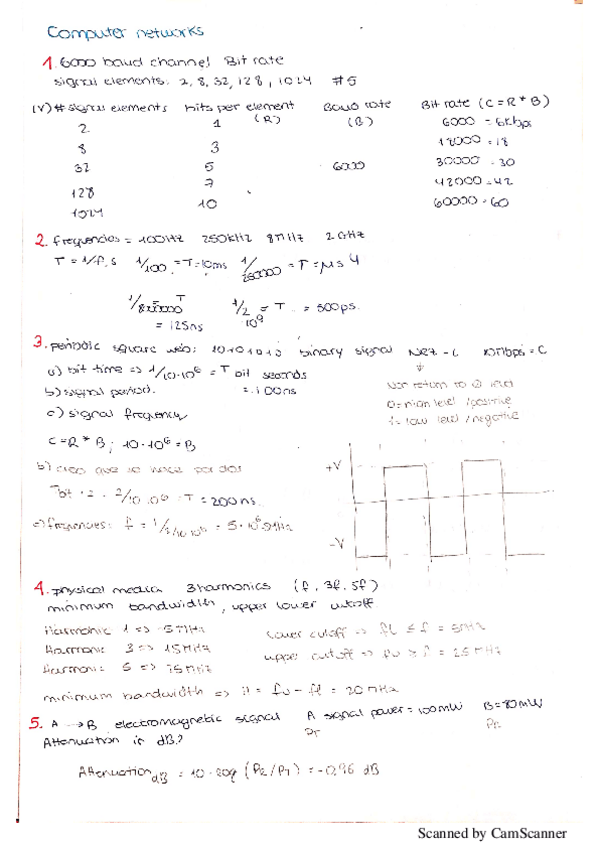 Computer networks
1. 6000 baud channel Bit rate
signal elements: 2, 8, 32, 128, 1024 #5
(V) # signal elements bits per element (R) Baud rate (B) Bit rate (C = R * B)
2 1 6000 = 6Kbps
8 3 18000 = 18
32 5 6000 30000 = 30
128 7 42000 = 42
1024 10 60000 = 60
2. frequencies = 100Hz 250kHz 8MHz 2GHz
T = 1/f, s 1/100 = T = 10ms 1/250000 = T = μs 4
T 1/2 10^9 = T = 500ps.
= 125ns
3. periodic square 10101010 binary signal - L 10Mbps = C
a) bit time => 1/10·10^6 = T bit seconds
b) signal period. = 100ns
Non return to level
c) signal frequency
0 = high level / positive
1 = low level / negative
C = R * B; 10·10^6 = B
b) creo que se hace por dos
T bit · 2 = T = 200ns.
c) = 5·10^6
+V
-V
4. physical media 3 harmonics (f, 3f, 5f)
minimum bandwidth, upper lower cutoff
Harmonic 1 => 5MHz lower cutoff => fL ≤ f = 5MHz
Harmoni: 3 => 15MHz upper cutoff => fu ≥ f = 25MHz
Harmoni: 5 => 25MHz
minimum bandwidth => = fu - fl = 20MHz
5. A → B electromagnetic signal A signal power = 100mW B = 80mW
PT PR
Attenuation in dB?
Attenuation dB = 10·log (P2/P1) = -0,96 dB
Scanned by CamScanner